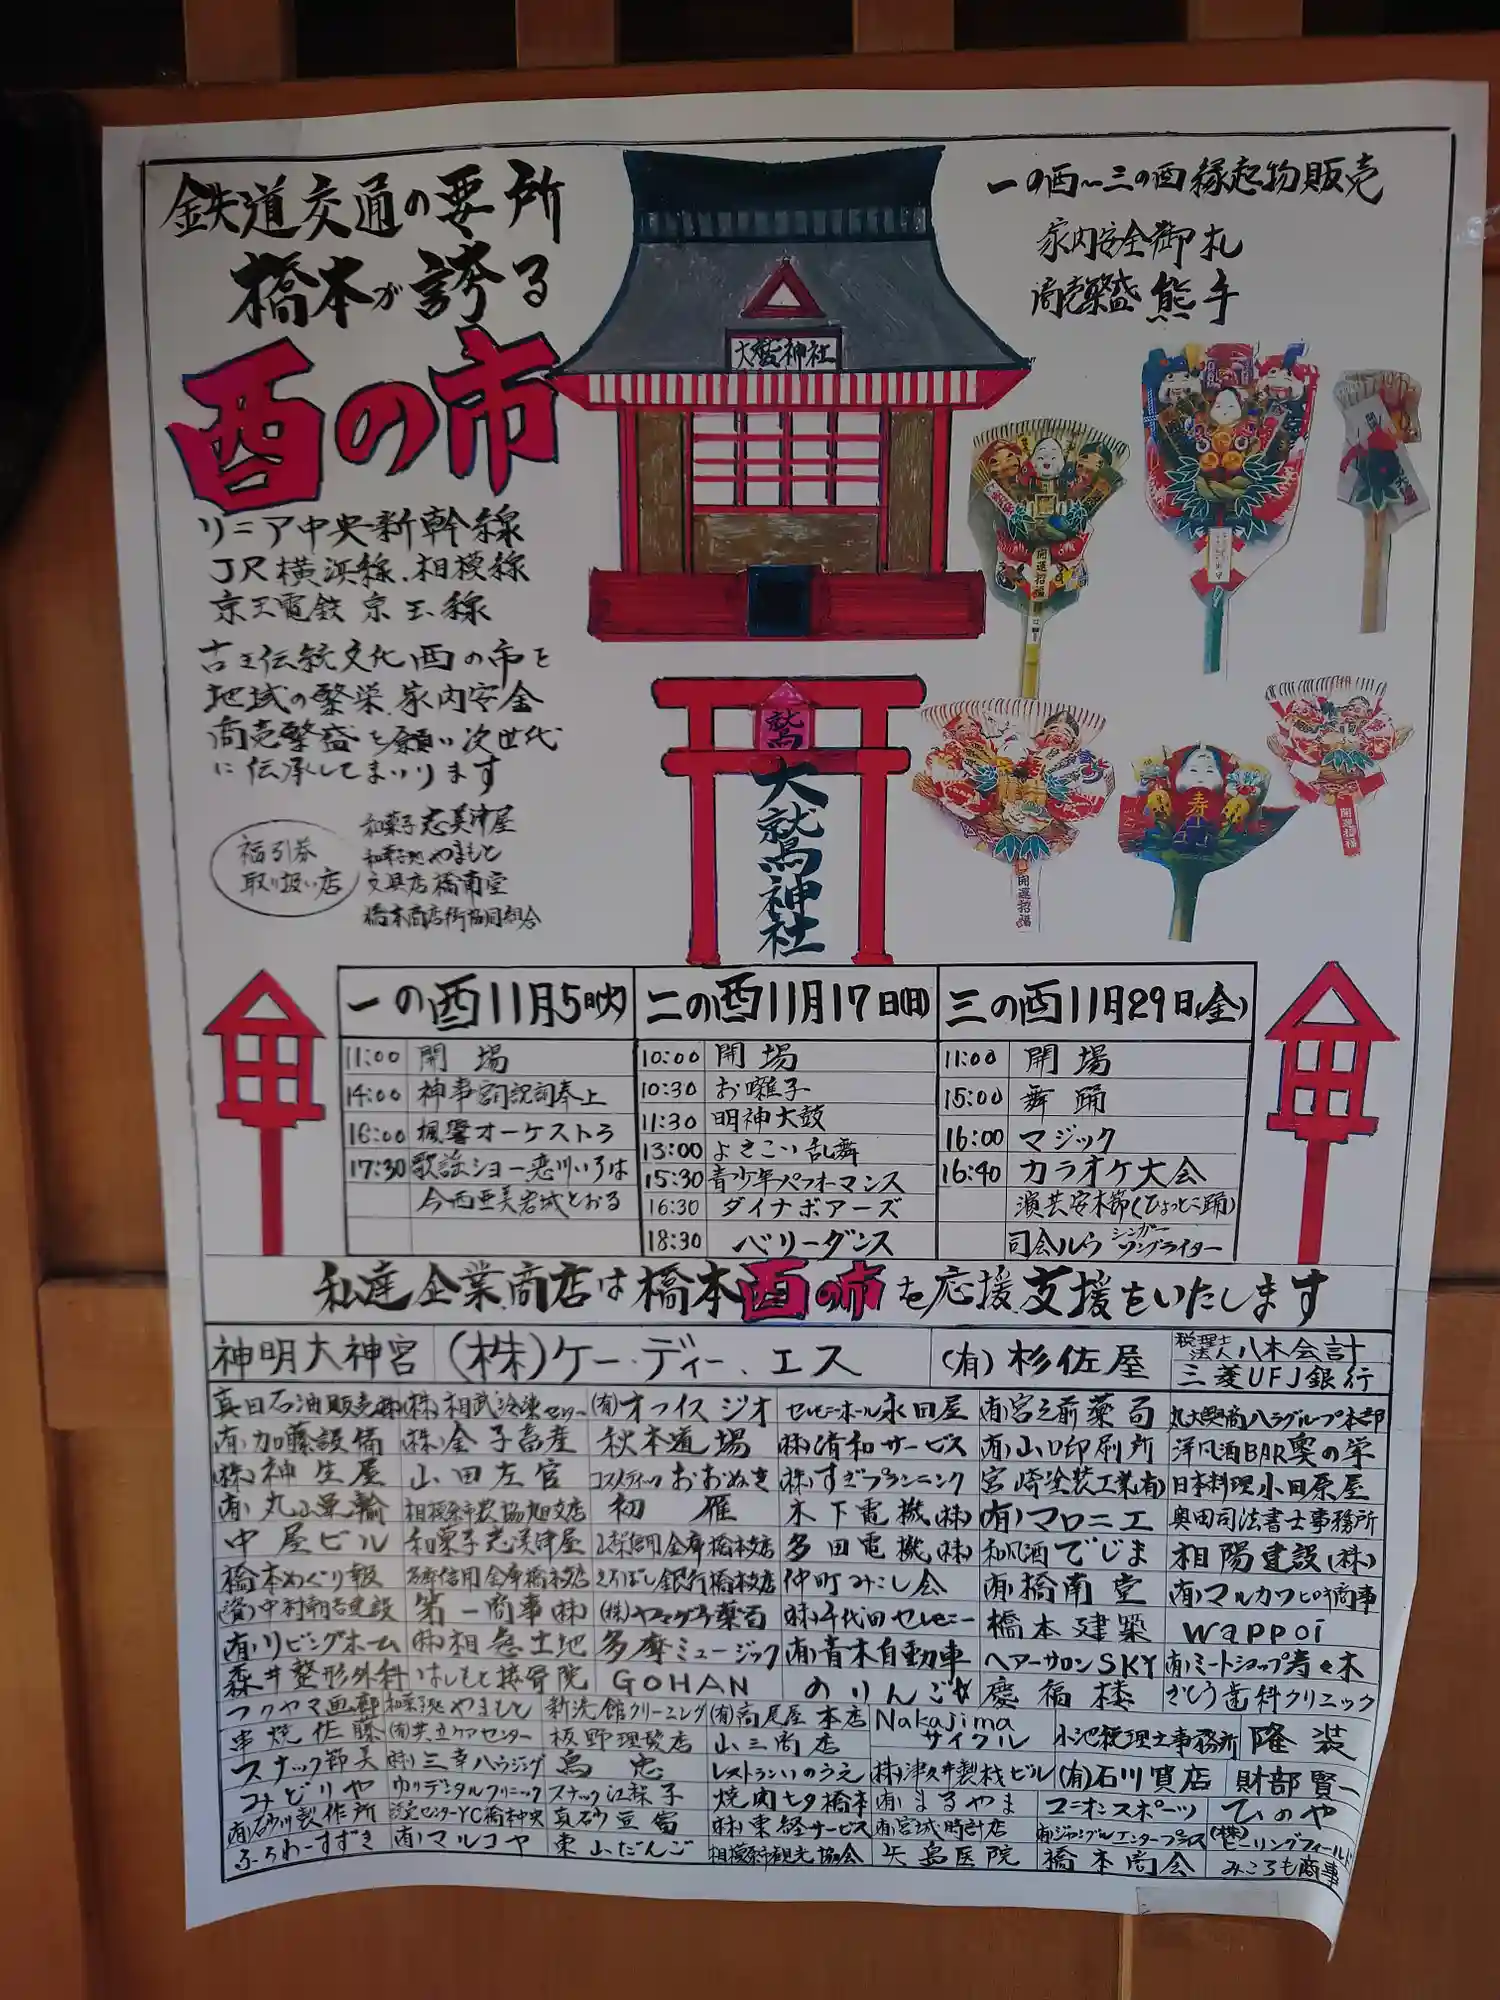 鉄道交通の要所
橋本が誇る
酉の市
リニア中央新幹線
JR横浜線.相模線
京王電鉄 京王線
古き伝統文化酉の市を
地域の繁栄.家内安全
商売繁盛を願い次世代
に伝承してまいります
福引券
取り扱い店
和菓子志美津屋
和菓子処やまもと
文具店橋南堂
橋本商店街協同組合
大鷲神社
鷲
大鷲神社
一の酉〜三の酉縁起物販売
家内安全御札
商売繁盛 熊手
開運招福
寿
開運招福
開運招福
一の酉11月5日(火)
11:00 開場
14:00 神事宮司祝詞奉上
16:00 楓響オーケストラ
17:30 歌謡ショー恋川いろは
今西亜美岩城とおる
二の酉11月17日(日)
10:00 開場
10:30 お囃子
11:30 明神太鼓
13:00 よさこい乱舞
15:30 青少年パフォーマンス
16:30 ダイナボアーズ
18:30 ベリーダンス
三の酉11月29日(金)
11:00 開場
15:00 舞踊
16:00 マジック
16:40 カラオケ大会
演芸安木節(ひょっとこ踊)
司会ルウ シンガーソングライター
私達企業.商店は橋本酉の市を応援.支援をいたします
神明大神宮 (株)ケー.ディー.エス (有)杉佐屋 税理士法人八木会計
三菱UFJ銀行
真日石油販売(株) (株)相武冷凍センター (有)オフィスジオ セレモニーホール永田屋 (有)宮之前薬局 丸大興商ハラグループ本部
(有)加藤設備 (株)金子畜産 秋本道場 (株)清和サービス (有)山口印刷所 洋風酒BAR奥の学
(株)神生屋 山田左官 コスメティックおおぬき (株)すぎプランニング 宮崎塗装工業(有) 日本料理小田原屋
(有)丸山単輪 相模原市農協旭支店 初雁 木下電機(株) (有)マロニエ 奥田司法書士事務所
中屋ビル 和菓子志美津屋 信用金庫橋本支店 多田電機(株) 和風酒でじま 相陽建設(株)
橋本めぐり報 信用金庫橋本支店 きらぼし銀行橋本支店 仲町みこし会 (有)橋南堂 (有)マルカワヒロキ商事
(資)中村朝吉建設 第一商事(株) (株)ヤマグチ薬局 (株)千代田セレモニー 橋本建築 wappoi
(有)リビングホーム (株)相急土地 多摩ミュージック (有)青木自動車 ヘアーサロンSKY (有)ミートショップ寿々木
森井整形外科 はしもと接骨院 GOHAN のりんご 慶福楼 さとう歯科クリニック
フクヤマ画廊 和菓子処やまもと 新洗館クリーニング (有)高尾屋本店 Nakajimaサイクル 小池税理士事務所 隆装
串焼佐藤 (有)共立ケアセンター 板野理髪店 山三商店
スナック節美 (株)三幸ハウジング 鳥忠 レストランいのうえ (株)津久井製材ビル (有)石川質店 財部賢一
みどりや ゆりデンタルクリニック スナック江梨子 焼肉七夕橋本 (有)まるやま ユニオンスポーツ ひのや
(有)石砂川製作所 読売センターYC橋本中央 真砂豆富 (株)東経サービス (有)宮城時計店 (有)ジャングルエンタープライズ (株)ヒーリングフィールド
ふらわーすずき (有)マルコヤ 東山だんご 相模原市観光協会 矢島医院 橋本商会 みころも商事